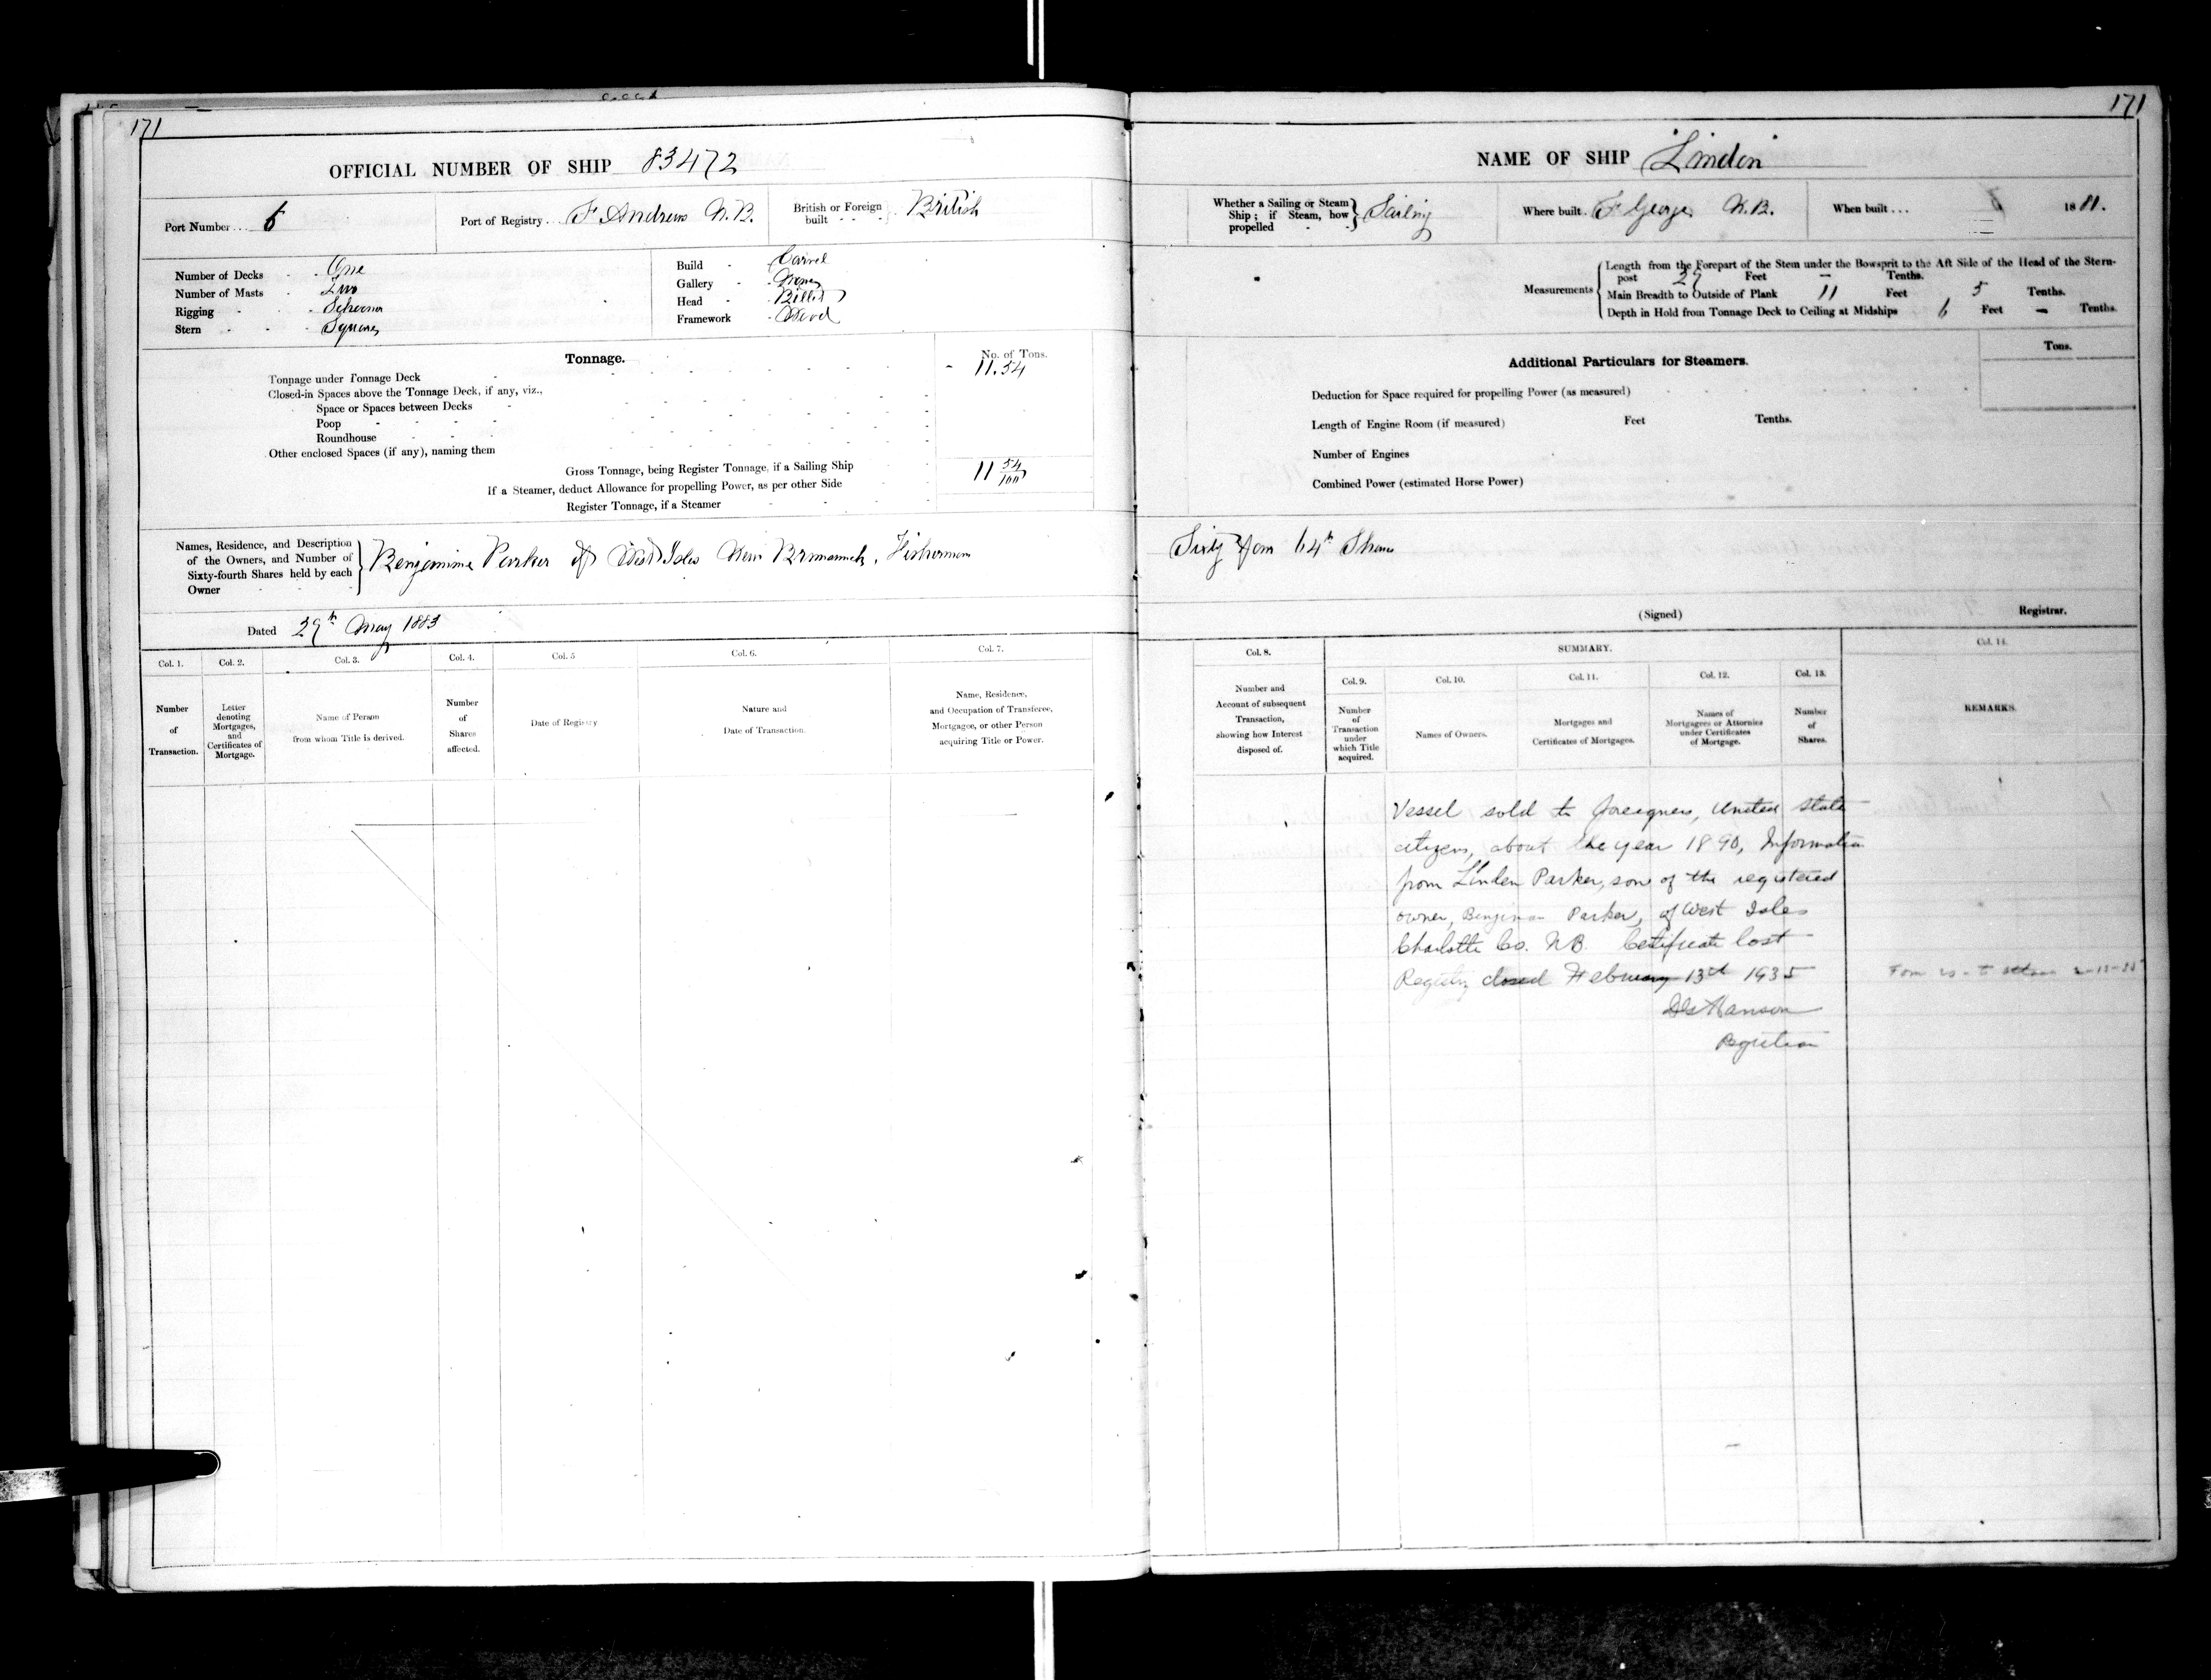 171
OFFICIAL NUMBER OF SHIP 83472
Port Number... 6
Port of Registry.. St Andrews N.B.
British or Foreign built - - - } British
Number of Decks - - One
Number of Masts - Two
Rigging - - Schooner
Stern - - - Square
Build - Carvel
Gallery - None
Head - Billet
Framework - Wood
Tonnage.
No. of Tons.
Tonnage under Tonnage Deck - 11.54
Closed-in Spaces above the Tonnage Deck, if any, viz.,
Space or Spaces between Decks
Poop
Roundhouse
Other enclosed Spaces (if any), naming them
Gross Tonnage, being Register Tonnage, if a Sailing Ship 11 54/100
If a Steamer, deduct Allowance for propelling Power, as per other Side
Register Tonnage, if a Steamer
Names, Residence, and Description
of the Owners, and Number of
Sixty-fourth Shares held by each
Owner
Benjamine Parker of West Isles New Brunswick, Fisherman
Dated 29th May 1883
Col. 1. Col. 2. Col. 3. Col. 4. Col. 5 Col. 6. Col. 7.
Number of Transaction.
Letter denoting Mortgages, and Certificates of Mortgage.
Name of Person from whom Title is derived.
Number of Shares affected.
Date of Registry
Nature and Date of Transaction.
Name, Residence, and Occupation of Transferee, Mortgagee, or other Person acquiring Title or Power.
171
NAME OF SHIP "Linden"
Whether a Sailing or Steam Ship; if Steam, how propelled - - } Sailing
Where built.. St George N.B.
When built... 1881.
Measurements
Length from the Forepart of the Stem under the Bowsprit to the Aft Side of the Head of the Stern-
post Feet — Tenths.
Main Breadth to Outside of Plank 11 Feet 5 Tenths.
Depth in Hold from Tonnage Deck to Ceiling at Midships 6 Feet — Tenths.
Additional Particulars for Steamers.
Tons.
Deduction for Space required for propelling Power (as measured)
Length of Engine Room (if measured) Feet Tenths.
Number of Engines
Combined Power (estimated Horse Power)
Sixty four 64th Shares
(Signed) Registrar.
Col. 8. SUMMARY. Col. 14.
Col. 9. Col. 10. Col. 11. Col. 12. Col. 13.
Number and Account of subsequent Transaction, showing how Interest disposed of.
Number of Transaction under which Title acquired.
Names of Owners.
Mortgages and Certificates of Mortgages.
Names of Mortgagees or Attornies under Certificates of Mortgage.
Number of Shares.
REMARKS.
Vessel sold to foreigners, United State
citizens, about the year 1890, Information
from Linden Parker, son of the registered
owner, Benjiman Parker, of West Isles
Charlotte Co. N.B. Certificate lost
Registry closed February 13th 1935
Hanson
Registrar